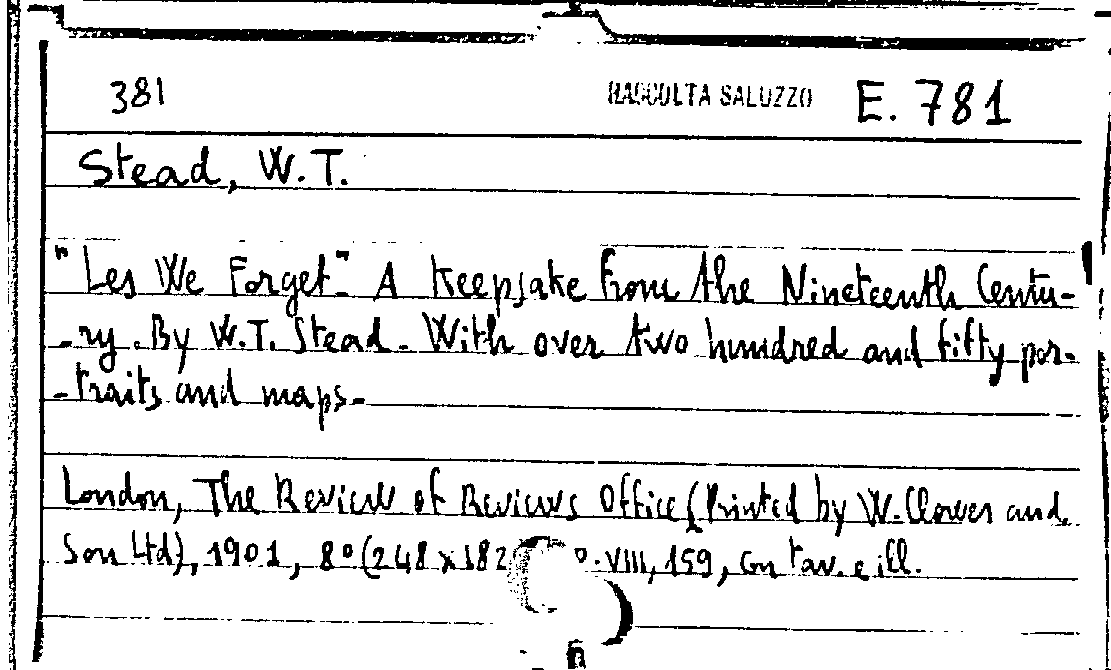 381 RACCOLTA SALUZZO E. 781
Stead, W.T.
"Les We Forget". A Keepsake from the Nineteenth Centu-
-ry. By W.T. Stead. With over two hundred and fifty por-
-traits and maps-
London, The Review of Reviews Office (Printed by W. Clowes and
Son Ltd), 1901, 8° (248 x 182 p. VIII, 159, con tav. e ill.